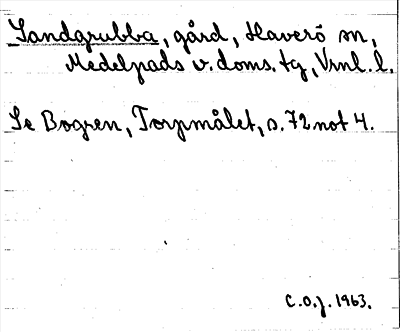 Sandgrubba, gård, Haverö sn,
Medelpads v. doms. tg, Vrnl. l.
Se Bogren, Torpmålet, s. 72 not 4.
C.O.J. 1963.